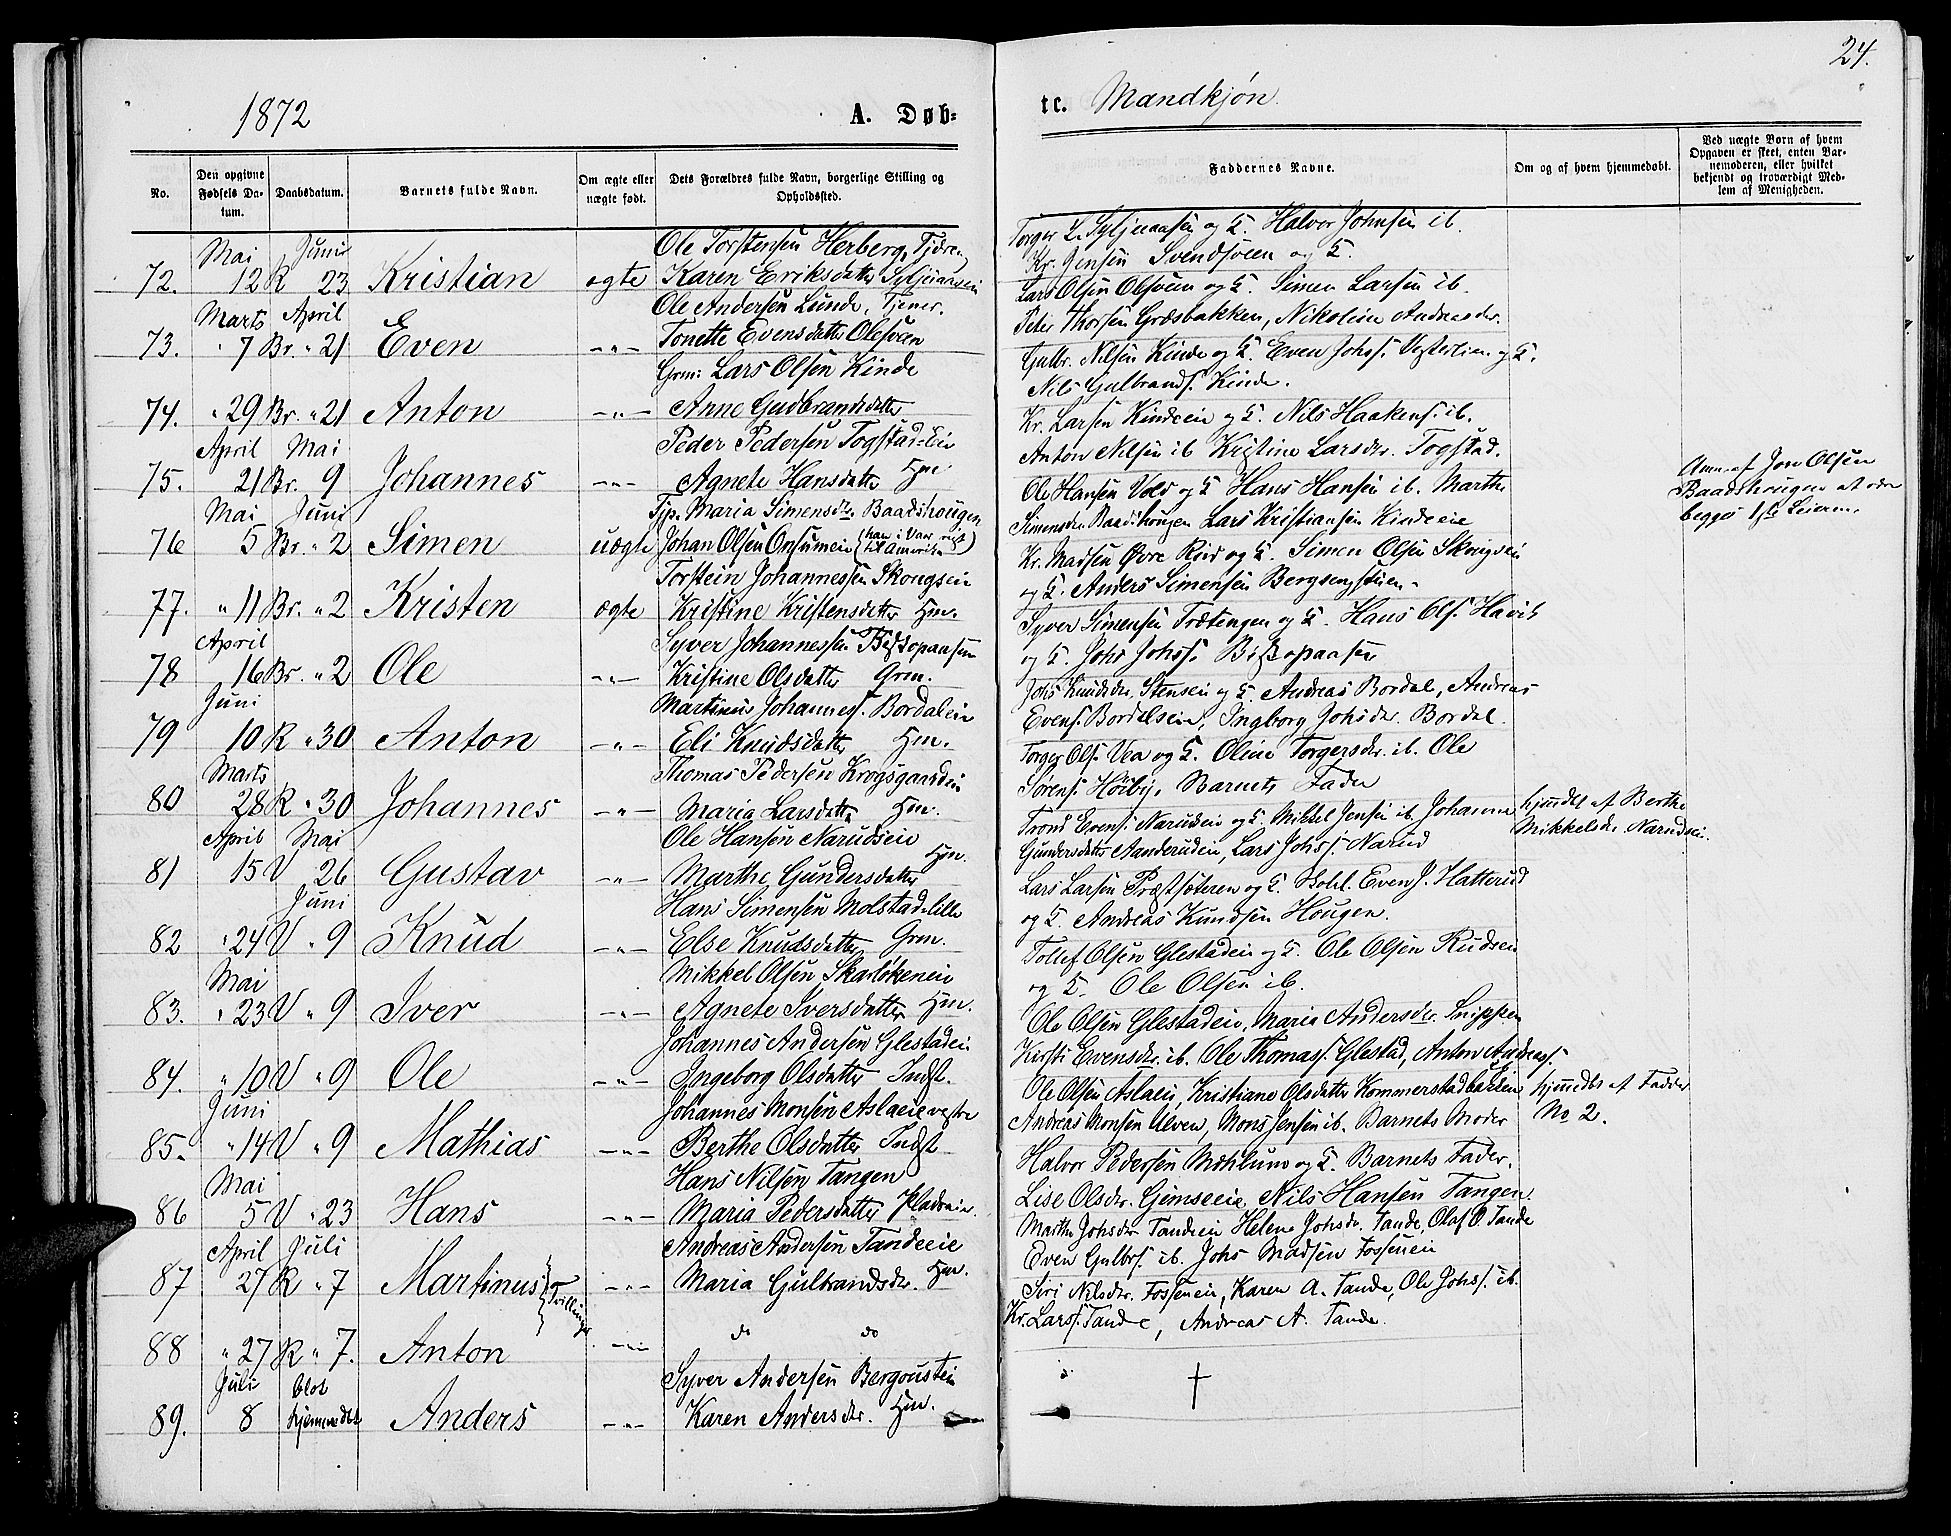 24.
1872
A. Døb-
te. Mandkjøn
No.
Den opgivne Fødsels Datum.
Daabsdatum.
Barnets fulde Navn.
Om ægte eller uægte født.
Dets Forældres fulde Navn, borgerlige Stilling og Opholdssted.
Faddernes Navne.
Om og af hvem hjemmedøbt.
Ved uægte Børn af hvem Opgaven er skeet, enten Barnemoderen, eller hvilket bekjendt og troværdigt Medlem af Menigheden.
Mai Juni Ole Torstensen Herberg, Tjdren
72. 12 R 23 Kristian ægte Karen Eriksdatter
Marts April Ole Andersen Lunde, Tjener.
73. " 7 Br. " 21 Even -"- Tonette Evensdatter Olesveen
Grm: Lars Olsen Kinde
74. " 29 Br. " 21 Anton -"- Anne Gudbrandsdatter
April Mai Peder Pedersen Togstadeie
75. 21 Br. 9 Johannes -"- Agnete Hansdatter Hm.
Mai Juni Pige Maria Simensdr. Baadshougen
76 5 Br. " 2 Simen uægte Johan Olsen Onsumeie (han i Vaar reist til Amerika)
Torstein Johannessen Skougseie
77. " 11 Br. " 2 Kristen ægte Kristine Kristensdatter Hm.
April Syver Johannessen Biskopaasen
78 16 Br. " 2 Ole -"- Kristine Olsdatter Grm.
Juni Martinus Johannes. Bordaleie
79 10 R " 30 Anton -"- Eli Knudsdatter Hm.
Marts Thomas Pedersen Krogsgaardeie
80 28 R " 30 Johannes -"- Maria Larsdatter Hm.
April Mai Ole Hansen Narudseie
81 15 V 26 Gustav -"- Marthe Gundersdatter Hm.
Juni Hans Simensen Molstad lille
82 " 24 V " 9 Knud -"- Else Knudsdatter Grm.
Mai Mikkel Olsen Skarløkeneie
83. " 23 V " 9 Iver -"- Agnete Iversdatter Hm.
Johannes Andersen Glestadeie
84. " 10 V " 9 Ole -"- Ingeborg Olsdatter Indst.
Juni Johannes Monsen Aslaeie vestre
85. " 14 V " 9 Mathias -"- Berthe Olsdatter Indst
Mai Hans Nilsen Tangen
86 5 V " 23 Hans -"- Maria Pedersdatter
April Juli Andreas Andersen Tandeeie
87 27 R " 7 Martinus Tvillinger -"- Maria Gulbrandsdr. Hm.
88 " 27 R " 7. Anton -"- do do
Juli blot Syver Andersen Bergousteie
89. 8 hjemmedbt Anders -"- Karen Andersdr. Hm.
Torger L. Syljuaasen og K. Halvor Johnsen ib.
Kr. Jensen Svendsveen og K.
Lars Olsen Olsveen og K. Simen Larsen ib.
Peter Thorsen Grøsbakken, Nikoline Andreasdr.
Gulbr. Nilsen Kinde og K. Even Johs. Vesterlien og K.
Nils Gulbrands. Kinde.
Kr. Larsen Kindeeie og K. Nils Haakens. ib.
Anton Nilsen ib Kristine Larsdr. Togstad.
Ole Hansen Vold og K Hans Hansen ib. Marthe
Simensdr. Baadshougen Lars Kristiansen Kindeeie
Kr. Madsen Øvre Rud og K. Simen Olsen Skougseie
og K. Anders Simensen Bergsengstuen.
Syver Simensen Trætengen og K. Hans Ols. Havik
og K. Johs Johss. Biskopaasen
Johs Knudsdr. Stenseie og K. Andreas Bordal, Andreas
Evens. Bordalseie, Ingborg Johsdr. Bordal.
Torger Ols. Vea og K. Oline Torgersdr. ib. Ole
Sørens. Høiby. Barnets Fader
Trond Evens. Narudeie og K. Mikkel Jensen ib. Johanne
Gundersdatter Aanderudeie, Lars Johs. Narud
Lars Larsen Præstsæteren og K. Even J. Hatterud
og K. Andreas Knudsen Hougen.
Tollef Olsen Glestadeie og K. Ole Olsen Rudseie
og K. Ole Olsen ib.
Ole Olsen Glestadeie, Maria Andersdr. Snippen
Kirsti Evensdr. ib. Ole Thomass. Glestad, Anton Andreass.
Ole Olsen Aslaeie, Kristiane Olsdatter Kommerstadbakken
Andreas Monsen Ulven, Mons Jensen ib. Barnets Moder
Halvor Pedersen Mæhlum og K. Barnets Fader.
Lise Olsdr. Gimseeie, Nils Hansen Tangen.
Marthe Johsdr Tandeeie Helene Johsdr. Tande, Olaf O. Tande
Even Gulbrs. ib. Johs Madsen Fosseneie
Siri Nilsdr. Fosseneie, Karen A. Tande, Ole Johs. ib.
Kr. Larss. Tande, Andreas A. Tande.
†
hjmdbt af Berthe
Mikkelsdr Narudseie.
hjemdbt af Fadder
No 2.
Anm. af Jon Olsen
Baadshougen at være
begges 1ste Leierm.